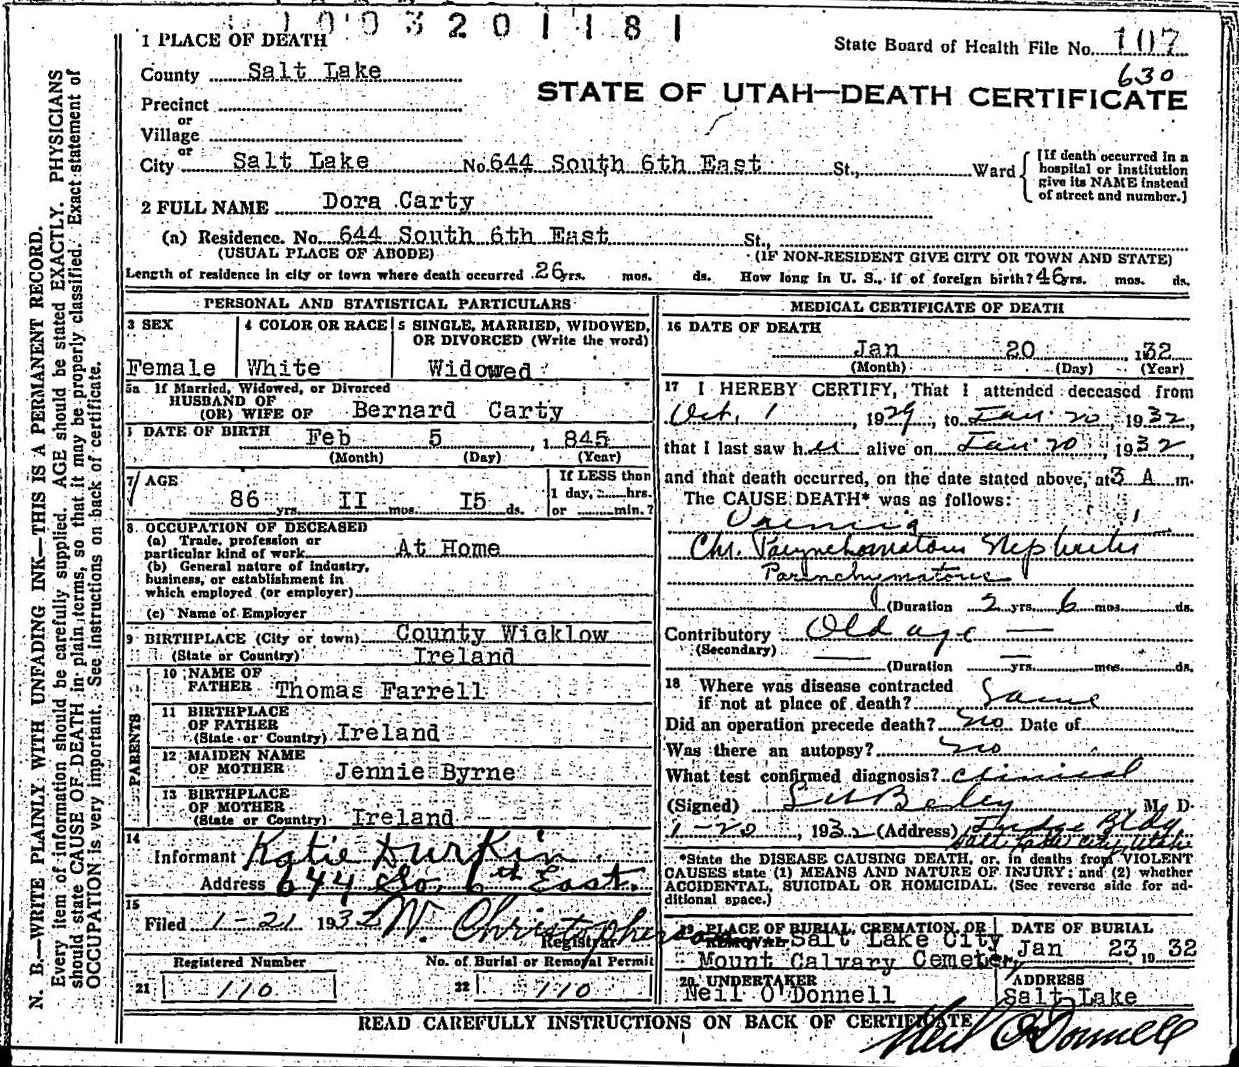 1003201181
1 PLACE OF DEATH
State Board of Health File No. 107
County Salt Lake
630
STATE OF UTAH—DEATH CERTIFICATE
Precinct
or
Village
or
City Salt Lake No. 644 South 6th East St., Ward
[If death occurred in a
hospital or institution
give its NAME instead
of street and number.]
2 FULL NAME Dora Carty
(a) Residence. No. 644 South 6th East St.,
(USUAL PLACE OF ABODE) (IF NON-RESIDENT GIVE CITY OR TOWN AND STATE)
Length of residence in city or town where death occurred 26 yrs. mos. ds. How long in U. S., if of foreign birth? 46 yrs. mos. ds.
PERSONAL AND STATISTICAL PARTICULARS
3 SEX
Female
4 COLOR OR RACE
White
5 SINGLE, MARRIED, WIDOWED,
OR DIVORCED (Write the word)
Widowed
5a If Married, Widowed, or Divorced
HUSBAND OF
(OR) WIFE OF Bernard Carty
DATE OF BIRTH Feb 5 , 1845
(Month) (Day) (Year)
7 AGE
86 yrs. II mos. I5 ds.
If LESS than
1 day, hrs.
or min.?
8. OCCUPATION OF DECEASED
(a) Trade, profession or
particular kind of work At Home
(b) General nature of industry,
business, or establishment in
which employed (or employer)
(c) Name of Employer
9 BIRTHPLACE (City or town) County Wicklow
(State or Country) Ireland
PARENTS
10 NAME OF
FATHER Thomas Farrell
11 BIRTHPLACE
OF FATHER
(State or Country) Ireland
12 MAIDEN NAME
OF MOTHER Jennie Byrne
13 BIRTHPLACE
OF MOTHER
(State or Country) Ireland
14
Informant Katie Durkin
Address 644 So. 6th East.
15
Filed 1-21 1932 W. Christopherson
Registrar
Registered Number No. of Burial or Removal Permit
21 110 22 110
MEDICAL CERTIFICATE OF DEATH
16 DATE OF DEATH
Jan 20 , 132
(Month) (Day) (Year)
17 I HEREBY CERTIFY, That I attended deceased from
Oct. 1 , 1929, to Jan 20, 1932,
that I last saw her alive on Jan 20, 1932,
and that death occurred, on the date stated above, at 3 A m.
The CAUSE DEATH* was as follows:
Uremia
Chr. Parynchomatous Nephritis
Parinchymatous
(Duration 2 yrs. 6 mos. ds.
Contributory Old age —
(Secondary)
(Duration yrs. mos. ds.
18 Where was disease contracted
if not at place of death? Same
Did an operation precede death? no Date of
Was there an autopsy? no
What test confirmed diagnosis? Clinical
(Signed) M. D.
1-20, 1932 (Address) Judge Bldg
Salt Lake City, Utah
*State the DISEASE CAUSING DEATH, or, in deaths from VIOLENT
CAUSES state (1) MEANS AND NATURE OF INJURY; and (2) whether
ACCIDENTAL, SUICIDAL OR HOMICIDAL. (See reverse side for ad-
ditional space.)
19 PLACE OF BURIAL, CREMATION, OR
REMOVAL Salt Lake City
Mount Calvary Cemetery
DATE OF BURIAL
Jan 23 19 32
20 UNDERTAKER
Neil O'Donnell
ADDRESS
Salt Lake
READ CAREFULLY INSTRUCTIONS ON BACK OF CERTIFICATE
Neil O'Donnell
N. B.—WRITE PLAINLY WITH UNFADING INK—THIS IS A PERMANENT RECORD.
Every item of information should be carefully supplied. AGE should be stated EXACTLY. PHYSICIANS
should state CAUSE OF DEATH in plain terms, so that it may be properly classified. Exact statement of
OCCUPATION is very important. See instructions on back of certificate.